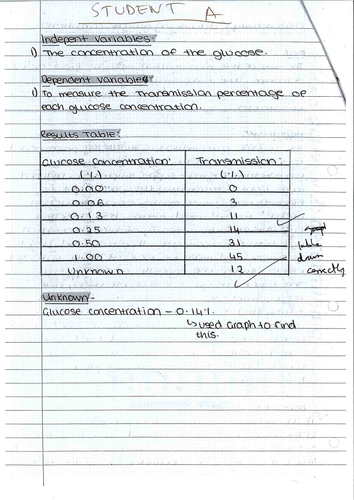 STUDENT A
Indepent Variables
1) The concentration of the glucose.
Dependent Variables
1) To measure the Transmission percentage of
each glucose concentration.
Results Table:
Glucose Concentration: Transmission:
(%) (%)
0.00 0
0.06 3
0.13 11
0.25 14
0.50 31
1.00 45
Unknown 12
table
drawn
correctly
Unknown-
Glucose concentration - 0.14%.
↳ used Graph to find
this.